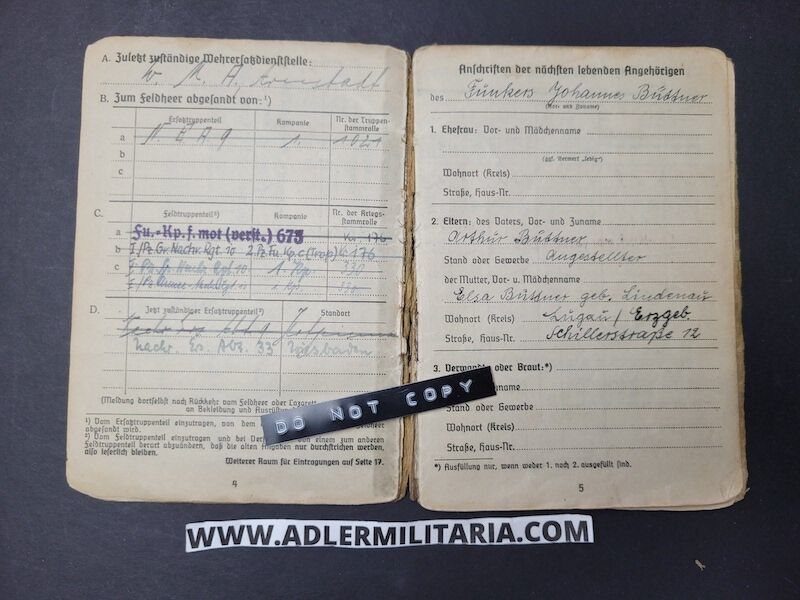 A. Zuletzt zuständige Wehrersatzdienststelle:
W. M. A. Arnstadt
B. Zum Feldheer abgesandt von:¹)
Ersatztruppenteil Kompanie Nr. der Truppenstammrolle
a N. E. A 9 1. 1021
b
c
C. Feldtruppenteil²) Kompanie Nr. der Kriegsstammrolle
a Fu.-Kp. f. mot (verst.) 673 176
b I./Pz. Gr. Nachr. Rgt. 10 2. Pz. Fu. Kp. c (Trop) 176
c Nachr. Rgt. 10 1. Kp. 330
D. Jetzt zuständiger Ersatztruppenteil²) Standort
Nachr. Ers. Abt. 33 Wiesbaden
(Meldung dortselbst nach Rückkehr vom Feldheer oder Lazarett
an Bekleidung und
¹) Vom Ersatztruppenteil einzutragen, von dem
abgesandt wird.
²) Vom Feldtruppenteil einzutragen und bei von einem zum anderen
Feldtruppenteil derart abzuändern, daß die alten Angaben nur durchstrichen werden,
also leserlich bleiben.
Weiterer Raum für Eintragungen auf Seite 17.
4
Anschriften der nächsten lebenden Angehörigen
des Funkers Johannes Büttner
(Vor- und Zuname)
1. Ehefrau: Vor- und Mädchenname
(ggf. Vermerk „ledig")
Wohnort (Kreis)
Straße, Haus-Nr.
2. Eltern: des Vaters, Vor- und Zuname
Arthur Büttner
Stand oder Gewerbe Angestellter
der Mutter, Vor- u. Mädchenname
Elsa Büttner geb. Lindenau
Wohnort (Kreis) Lugau / Erzgeb.
Straße, Haus-Nr. Schillerstraße 12
3. Verwandte oder Braut:*)
Stand oder Gewerbe
Wohnort (Kreis)
Straße, Haus-Nr.
*) Ausfüllung nur, wenn weder 1. noch 2. ausgefüllt sind.
5
DO NOT COPY
WWW.ADLERMILITARIA.COM